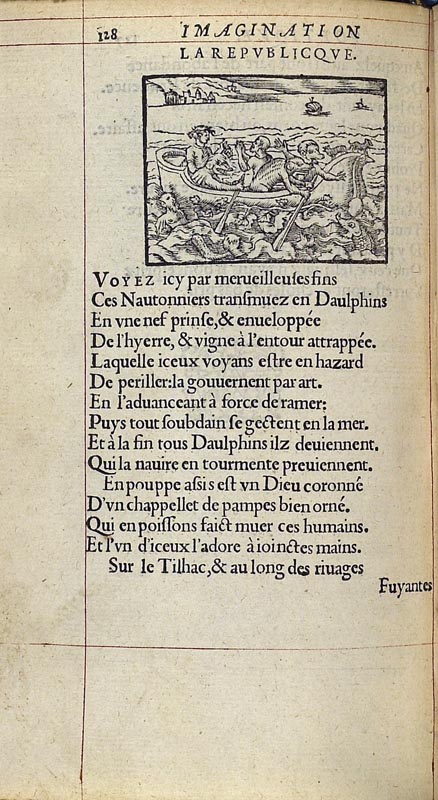 128 IMAGINATION
LA REPVBLICQVE.
VOYEZ icy par merueilleuſes fins
Ces Nautonniers tranſmuez en Daulphins
En vne nef prinſe,& enueloppée
De l'hyerre, & vigne à l'entour attrappée.
Laquelle iceux voyans eſtre en hazard
De periller:la gouuernent par art.
En l'aduanceant à force de ramer:
Puys tout ſoubdain ſe gectent en la mer.
Et à la fin tous Daulphins ilz deuiennent.
Qui la nauire en tourmente preuiennent.
En pouppe aſsis eſt vn Dieu coronné
D'vn chappellet de pampes bien orné.
Qui en poiſſons faict muer ces humains.
Et l'vn d'iceux l'adore à ioinctes mains.
Sur le Tilhac,& au long des riuages
Fuyantes